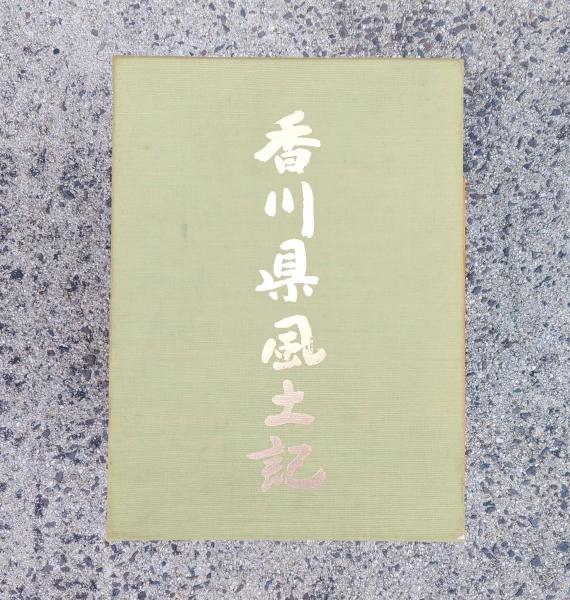 香川県風土記